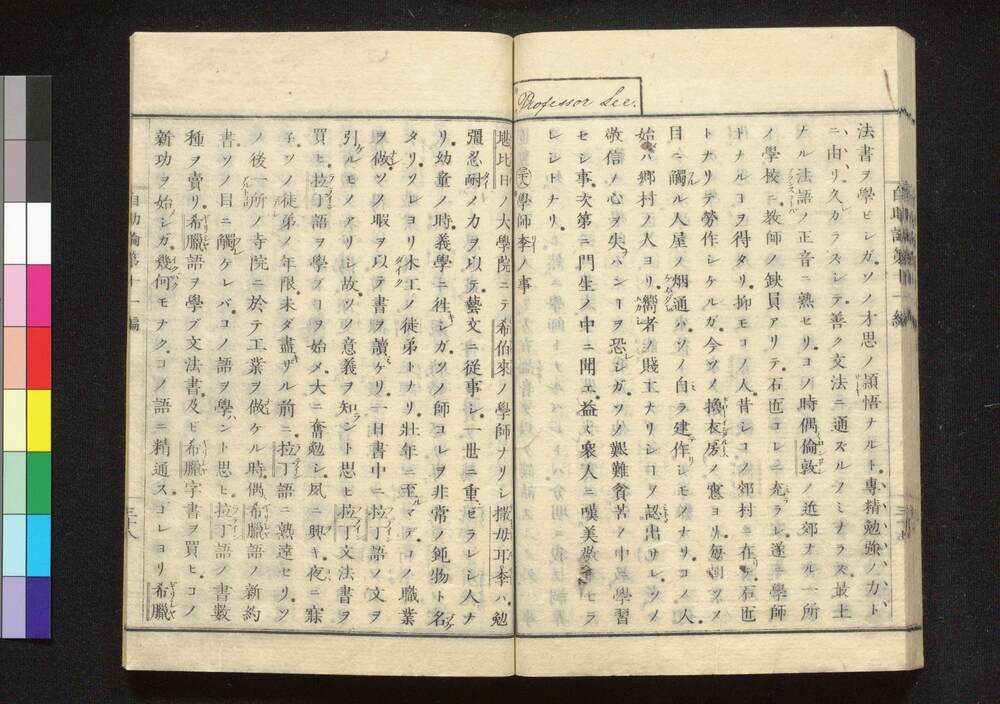 Professor Lee.
法書ヲ學ビシガソノ才思ノ頴悟ナルト、專精勉強ノ力ト
ニ、由リ久カラズシテ善ク文法ニ通ズルノミナラズ最上
ナル法語ノ正音ニ熟セリコノ時偶倫敦ノ近郊ナル一所
ノ學校ニ教師ノ缺員アリテ石匠コレニ充ラレ遂ニ學師
トナルコヲ得タリ抑モコノ人昔シコノ郊村ニ在テ石匠
トナリテ勞作シケルガ今ソノ換衣房ノ窻ヨリ毎朝ソノ
目ニ觸ル人屋ノ烟通ハソノ自ラ建作シモノナリコノ人
始ハ郷村ノ人ヨリ嚮者ノ賤工ナリシコヲ認出サレソノ
敬信ノ心ヲ失ハンコヲ恐シガソノ艱難貧苦ノ中ニ學習
セシ事次第ニ門生ノ中ニ聞エ益ス衆人ニ嘆美敬セラ
レシトナリ
學師李ノ事
堪比日ノ大學院ニテ希伯來ノ學師ナリシ撒母耳李ハ勉
彊忍耐ノ力ヲ以テ藝文ニ從事シ一世ニ重ゼラレシ人ナ
リ幼童ノ時義學ニ徃シガソノ師コレヲ非常ノ鈍物ト名
タリソレヨリ木工ノ徒弟トナリ壯年ニ至ルマデコノ職業
ヲ做ソノ暇ヲ以テ書ヲ讀ケリ一日書中ニ拉丁語ノ文ヲ
引ルモノアリシ故ソノ意義ヲ知ント思ヒ拉丁文法書ヲ
買ヒ拉丁語ヲ學ブコヲ始メ大ニ奮勉シ夙ニ興キ夜ニ寐
子ソノ徒弟ノ年限未ダ盡ザル前ニ拉丁語ニ熟達セリソ
ノ後一所ノ寺院ニ於テ工業ヲ做ケル時偶希臘語ノ新約
書ソノ目ニ觸ケレバコノ語ヲ學ント思ヒ拉丁語ノ書數
種ヲ賣リ希臘語ヲ學ブ文法書及ビ希臘字書ヲ買ヒコノ
新功ヲ始シガ幾何モナクコノ語ニ精通スコレヨリ希臘
自助論第十一編
三十八